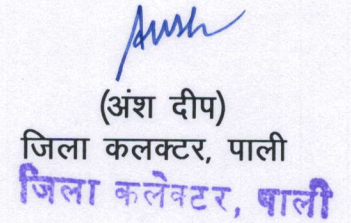 Ansh
(अंश दीप)
जिला कलक्टर, पाली
जिला कलेक्टर, पाली